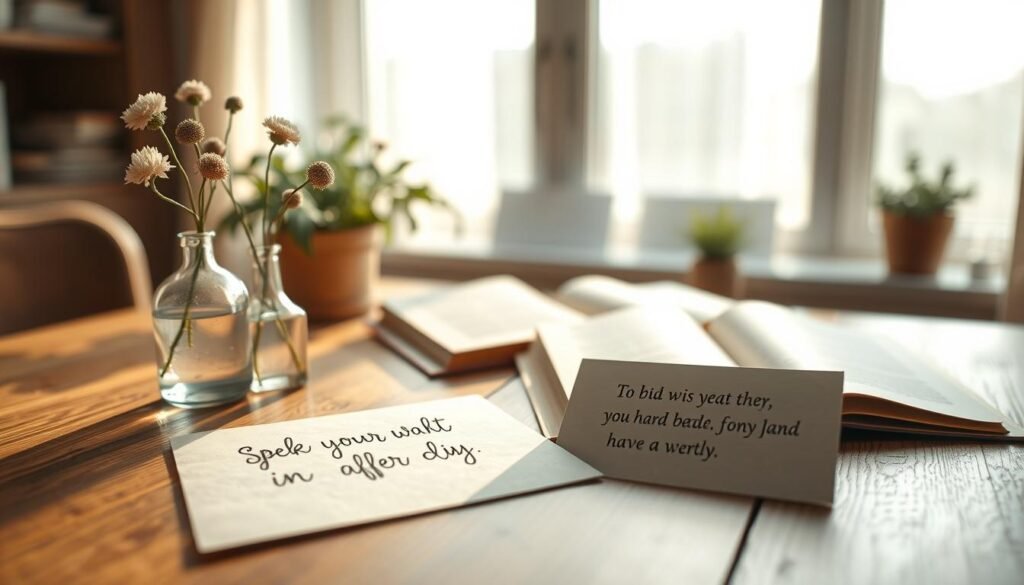 Spek your waht
in affer diy.
To bid wis yeat ther,
you hard bede. fony Jand
have a wertly.